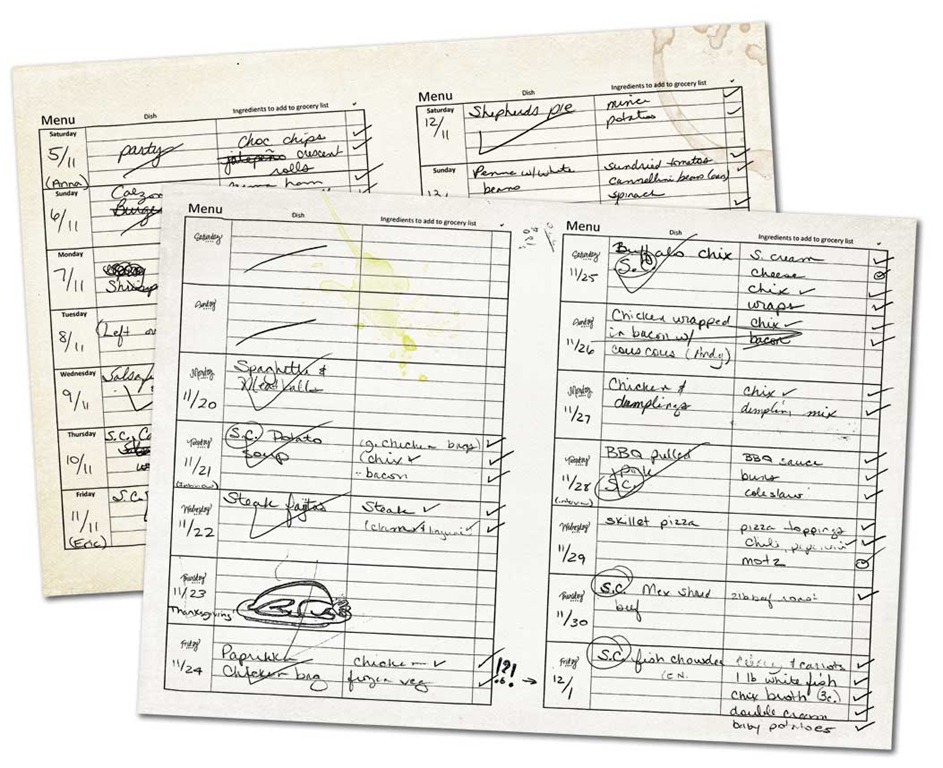 Menu
Dish
Ingredients to add to grocery list
Saturday
5/11
(Anna)
party
choc chips
jalepeño crescent
rolls
ham
Sunday
6/11
Monday
7/11
Shrimp
Tuesday
8/11
(Left
Wednesday
9/11
Thursday
10/11
S.C.
Friday
11/11
(Eric)
S.C.
Menu
Dish
Ingredients to add to grocery list
Saturday
12/11
Shepherds pie
mince
potatos
Sunday
Penne w/white
beans
sundried tomatos
cannellini beans (can)
spinach
Menu
Dish
Ingredients to add to grocery list
Saturday
Sunday
Monday
11/20
Spaghetti &
Meatballs
Tuesday
11/21
S.C. Potato
soup
(g. chicken bags)
(chix ✓
bacon
Wednesday
11/22
Steak fajitas
Steak ✓
Thursday
11/23
Thanksgiving
Friday
11/24
Paprikka
Chicken bag
chicken ✓
frozen veg
!?!
Dish
Ingredients to add to grocery list
Menu
Saturday
11/25
Buffalo chix
S.C.
S. cream
cheese
chix ✓
wraps
Sunday
11/26
Chicken wrapped
in bacon w/
couscous (Andy)
chix ✓
bacon
Monday
11/27
Chicken &
dumplings
chix ✓
dumplin mix
Tuesday
11/28
BBQ pulled
pork
S.C.
BBQ sauce
buns
coleslaw
Wednesday
11/29
skillet pizza
pizza toppings
motz
Thursday
11/30
S.C. Mex shred
beef
2lb beef roast
Friday
12/1
S.C. fish chowder
carrots
1 lb white fish
chix broth (3c.)
double cream
baby potatoes